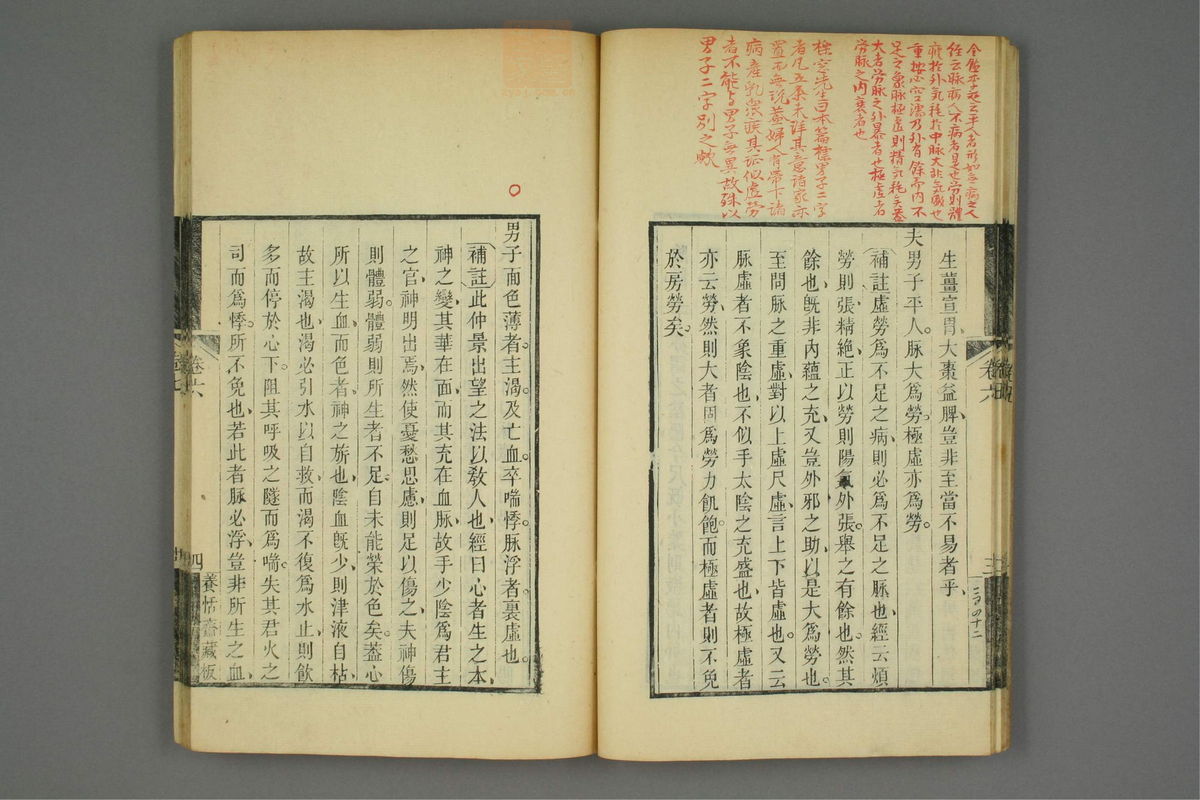 全鑑本
経云脉病人不病者是也労則體
疲於外気耗於中脉大非気盛也
重按必空濡乃外有餘而内不
足之象脉極虚則精気耗矣蓋
大者労脉之外暴者也極虚者
労脉之内衰者也
先生曰本篇標男子二字
者凡五条未詳其意諸家亦
置而無説蓋婦人有帯下諸
病産乳衆疾其証似虚労
者不能与男子無異故殊以
男子二字別之歟
生薑宣胃大棗益脾豈非至當不易者乎
夫男子平人脉大爲勞極虛亦爲勞
補註虛勞爲不足之病則必爲不足之脉也經云煩
勞則張精絶正以勞則陽氣外張舉之有餘也然其
餘也旣非內蘊之充又豈外邪之助以是大爲勞也
至問脉之重虛對以上虛尺虛言上下皆虛也又云
脉虛者不象陰也不似手太陰之充盛也故極虛者
亦云勞然則大者因爲勞力飢飽而極虛者則不免
於房勞矣
卷六
男子面色薄者主渴及亡血卒喘悸脉浮者裏虛也
補註此仲景出望之法以敎人也經曰心者生之本
神之變其華在面而其充在血脉故手少陰爲君主
之官神明出焉然使憂愁思慮則足以傷之夫神傷
則體弱體弱則所生者不足自未能榮於色矣蓋心
所以生血而色者神之旂也陰血旣少則津液自枯
故主渴也渴必引水以自救而渴不復爲水止則飮
多而停於心下阻其呼吸之隧而爲喘失其君火之
司而爲悸所不免也若此者脉必浮豈非所生之血
卷六
四
養恬齋藏板